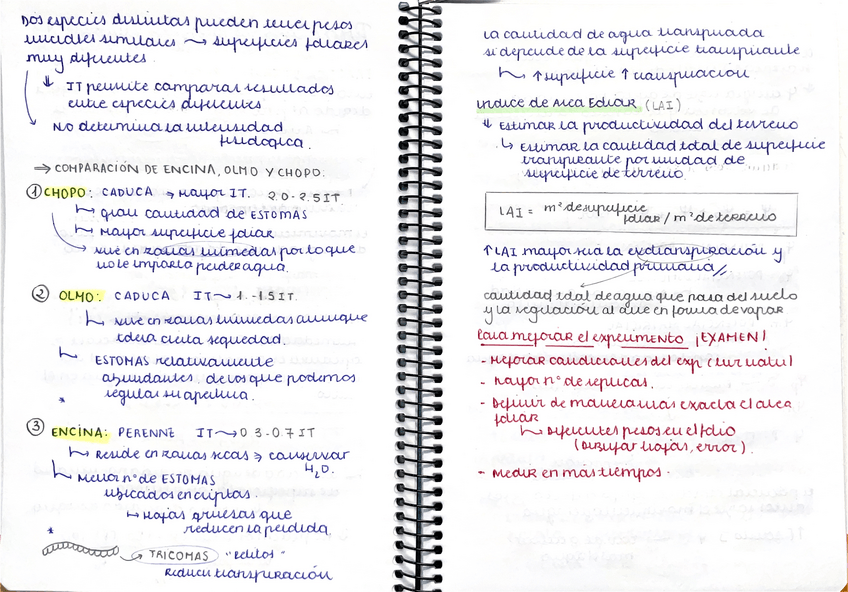 Dos especies distintas pueden tener pesos
iniciales similares → superficies foliares
muy diferentes.
IT permite comparar resultados
entre especies diferentes
No determina la intensidad
fisiológica.
⇒ COMPARACIÓN DE ENCINA, OLMO Y CHOPO:
① CHOPO: CADUCA → Mayor IT. 2.0-2.5 IT
↳ gran cantidad de ESTOMAS
↳ Mayor superficie foliar
vive en zonas húmedas por lo que
no le importa perder agua.
② OLMO: CADUCA IT → 1.-1.5 IT.
↳ vive en zonas húmedas aunque
tolera cierta sequedad.
↳ ESTOMAS relativamente
abundantes, de los que podemos
regular su apertura.
*
③ ENCINA: PERENNE IT → 0.3-0.7 IT
↳ Reside en zonas secas ⇒ conservar
H₂O.
↳ Menor nº de ESTOMAS
ubicados en criptas.
↳ Hojas gruesas que
reducen la pérdida
*
→ TRICOMAS "Pelitos"
Reducen transpiración
La cantidad de agua transpirada
si depende de la superficie transpirante
↳ ↑ superficie ↑ transpiración
Indice de Area Foliar (LAI)
⇓ Estimar la productividad del terreno
↳ Estimar la cantidad total de superficie
transpirante por unidad de
superficie de terreno
LAI = m² de superficie
foliar / m² de terreno
↑ LAI mayor sea la evotranspiración y
la productividad primaria //
cantidad total de agua que pasa del suelo
y la vegetación al aire en forma de vapor
Para mejorar el experimento ¡EXAMEN!
- Mejorar condiciones del exp (luz natu)
- Mayor nº de replicas.
- Definir de manera más exacta el área
foliar
↳ Diferentes pesos en el folio
(Dibujar hojas, error).
- Medir en más tiempos.